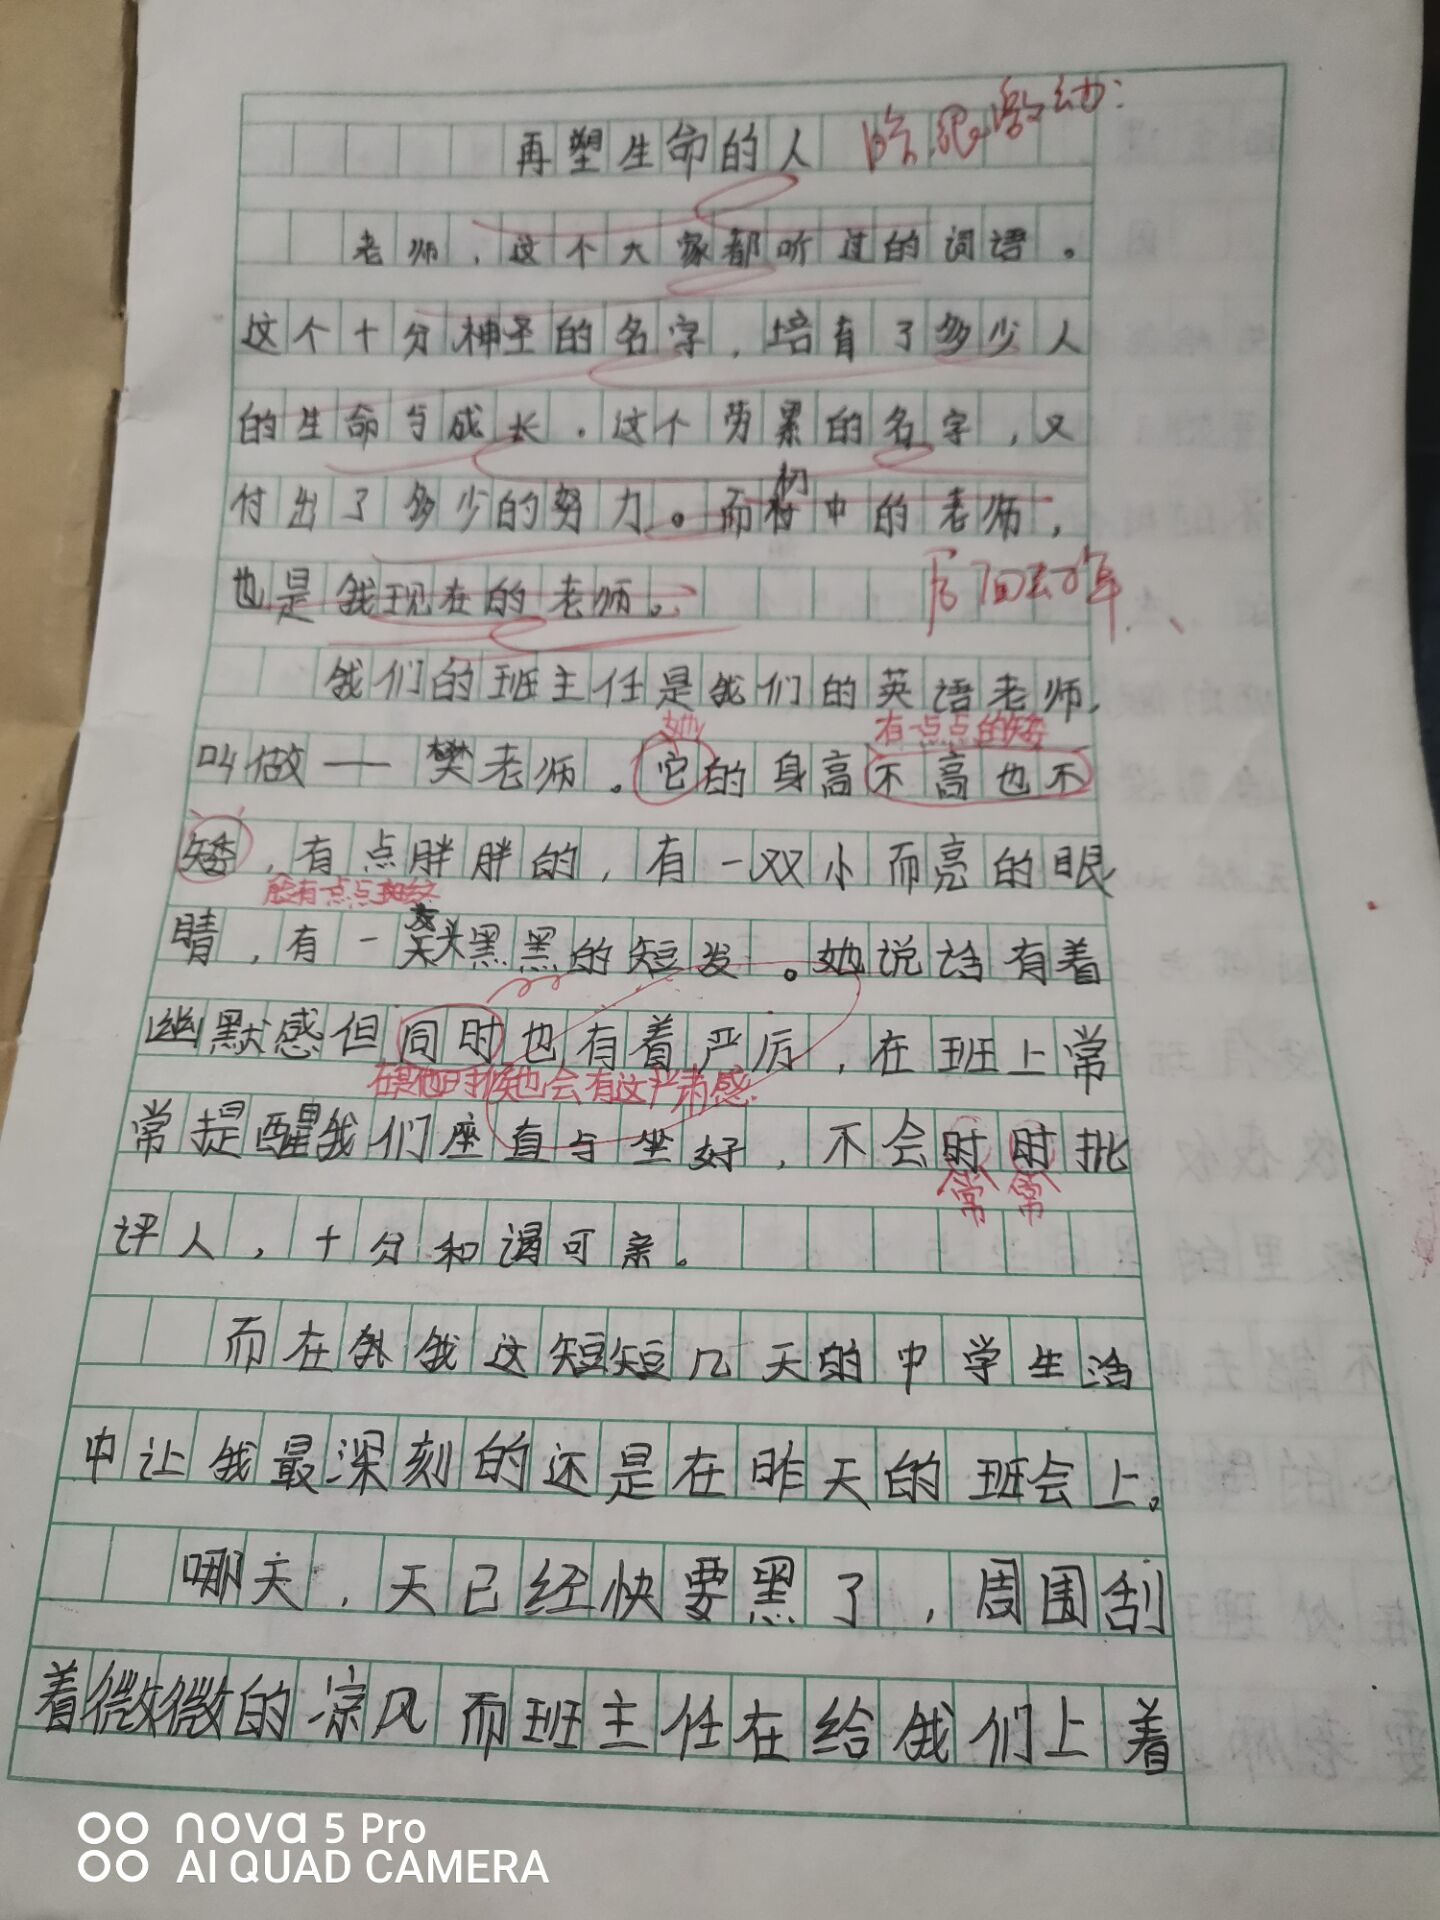 再塑生命的人
老师,这个大家都听过的词语。
这个十分神圣的名字,培育了多少人
的生命与成长.这个劳累的名字,又
付出了多少的努力。而初中的老师,
也是我现在的老师。
我们的班主任是我们的英语老师,
她 有一点点的矮
叫做——樊老师.它的身高不高也不
矮,有点胖胖的,有一双小而亮的眼
睛,有一头黑黑的短发。她说话有着
幽默感但同时也有着严厉,在班上常
在其他时候也会有这严肃感.
常提醒我们座直与坐好,不会时时批
常常
评人,十分和谒可亲。
而在我这短短几天的中学生活
中让我最深刻的还是在昨天的班会上。
哪天,天已经快要黑了,周围刮
着微微的凉风而班主任在给我们上着
nova 5 Pro
AI QUAD CAMERA